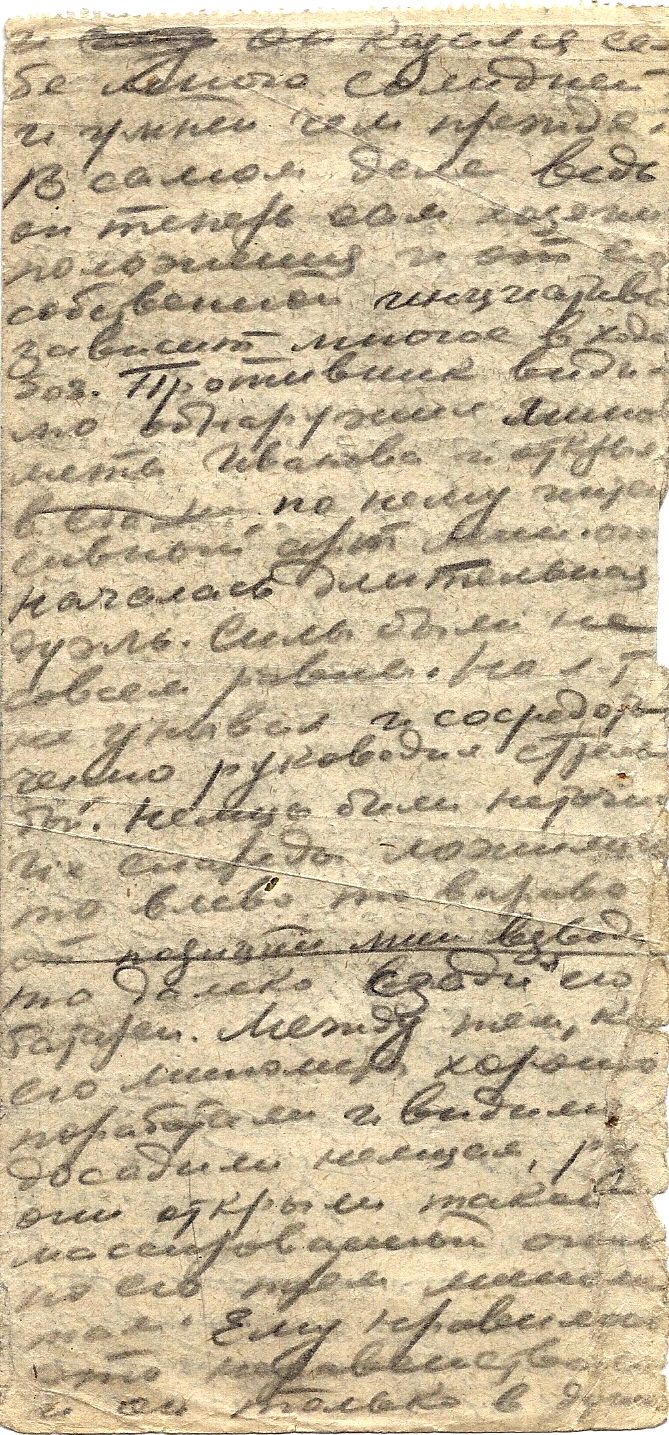 и он казался се-
бе много солидней
и умней чем прежде.
В самом деле ведь
он теперь сам хозяин
положения и от его
собственной инициативы
зависит многое в ходе
боя. Противник види-
мо обнаружил мино
меты Иванова и открыл
по нему интен
сивный арт мин. ог
началась длительная
дуэль. Силы были не
совсем равны. Но л-т
не унывал и сосредото
ченно руководил стрель
бой. Немцы были неточны
их снаряды ложились
то влево то вправо
от позиции мин взвода
то далеко сзади его
батареи. Между тем, к
его минометы хорошо
поработали и видимо
досадили немцам, раз
они открыли такой
массированный огонь
по его трем миноме
там. Ему нравилось
это неравенство
и он только в душе